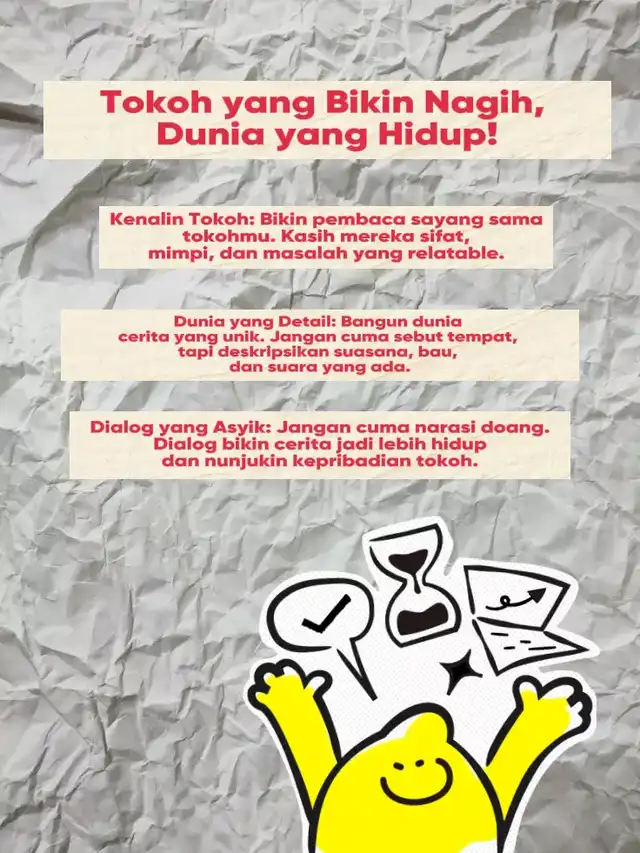 Tokoh yang Bikin Nagih,
Dunia yang Hidup!
Kenalin Tokoh: Bikin pembaca sayang sama
tokohmu. Kasih mereka sifat,
mimpi, dan masalah yang relatable.
Dunia yang Detail: Bangun dunia
cerita yang unik. Jangan cuma sebut tempat,
tapi deskripsikan suasana, bau,
dan suara yang ada.
Dialog yang Asyik: Jangan cuma narasi doang.
Dialog bikin cerita jadi lebih hidup
dan nunjukin kepribadian tokoh.